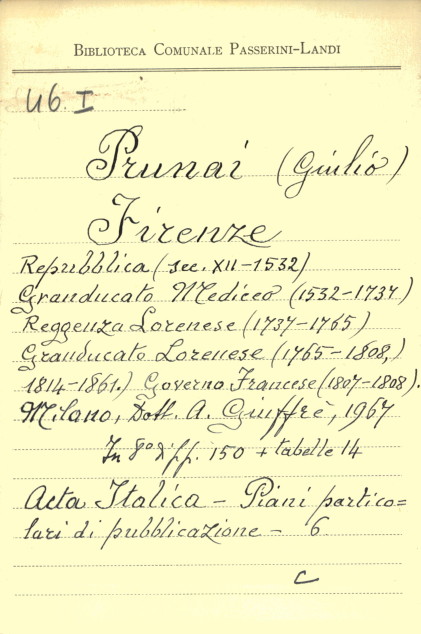 BIBLIOTECA COMUNALE PASSERINI-LANDI
U6. I
Prunai (Giulio)
Firenze
Repubblica (sec. XII-1532)
Granducato Mediceo (1532-1737)
Reggenza Lorenese (1737-1765)
Granducato Lorenese (1765-1808,)
1814-1861.) Governo Francese (1807-1808).
Milano, Dott. A. Giuffrè, 1967
In 8° pp. 150 + tabelle 14
Acta Italica - Piani partico=
lari di pubblicazione - 6
C